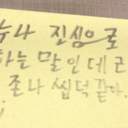 누나 진심으로
하는 말인데
존나 씹덕 같아.